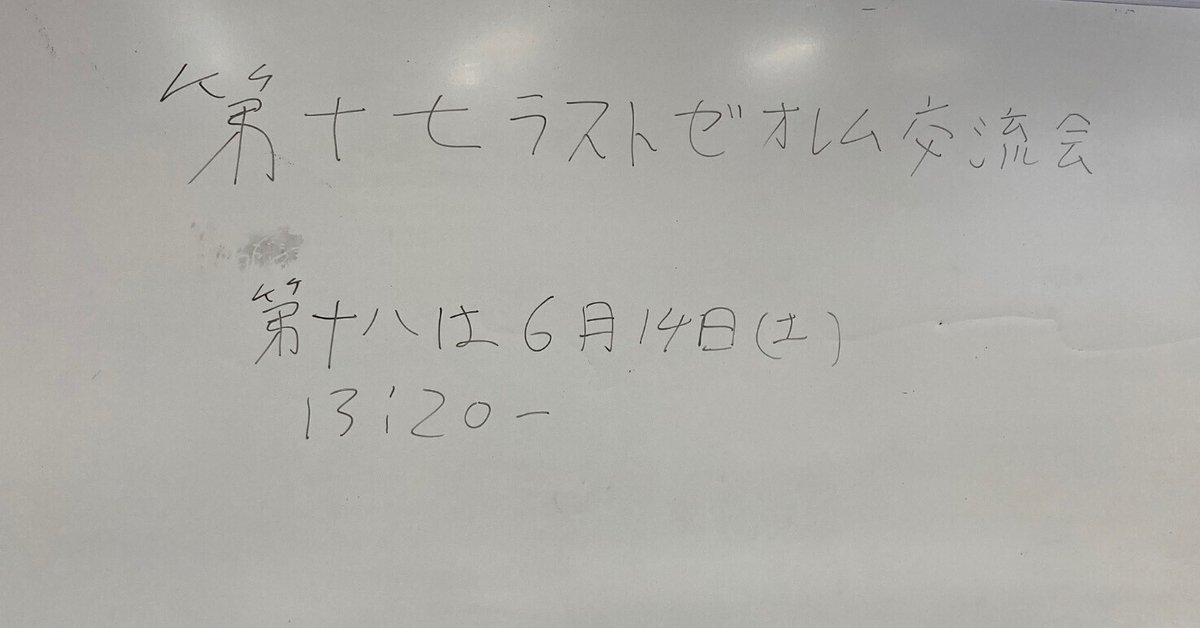 第十七ラストゼオレム交流会
第十八は6月14日(土)
13:20-